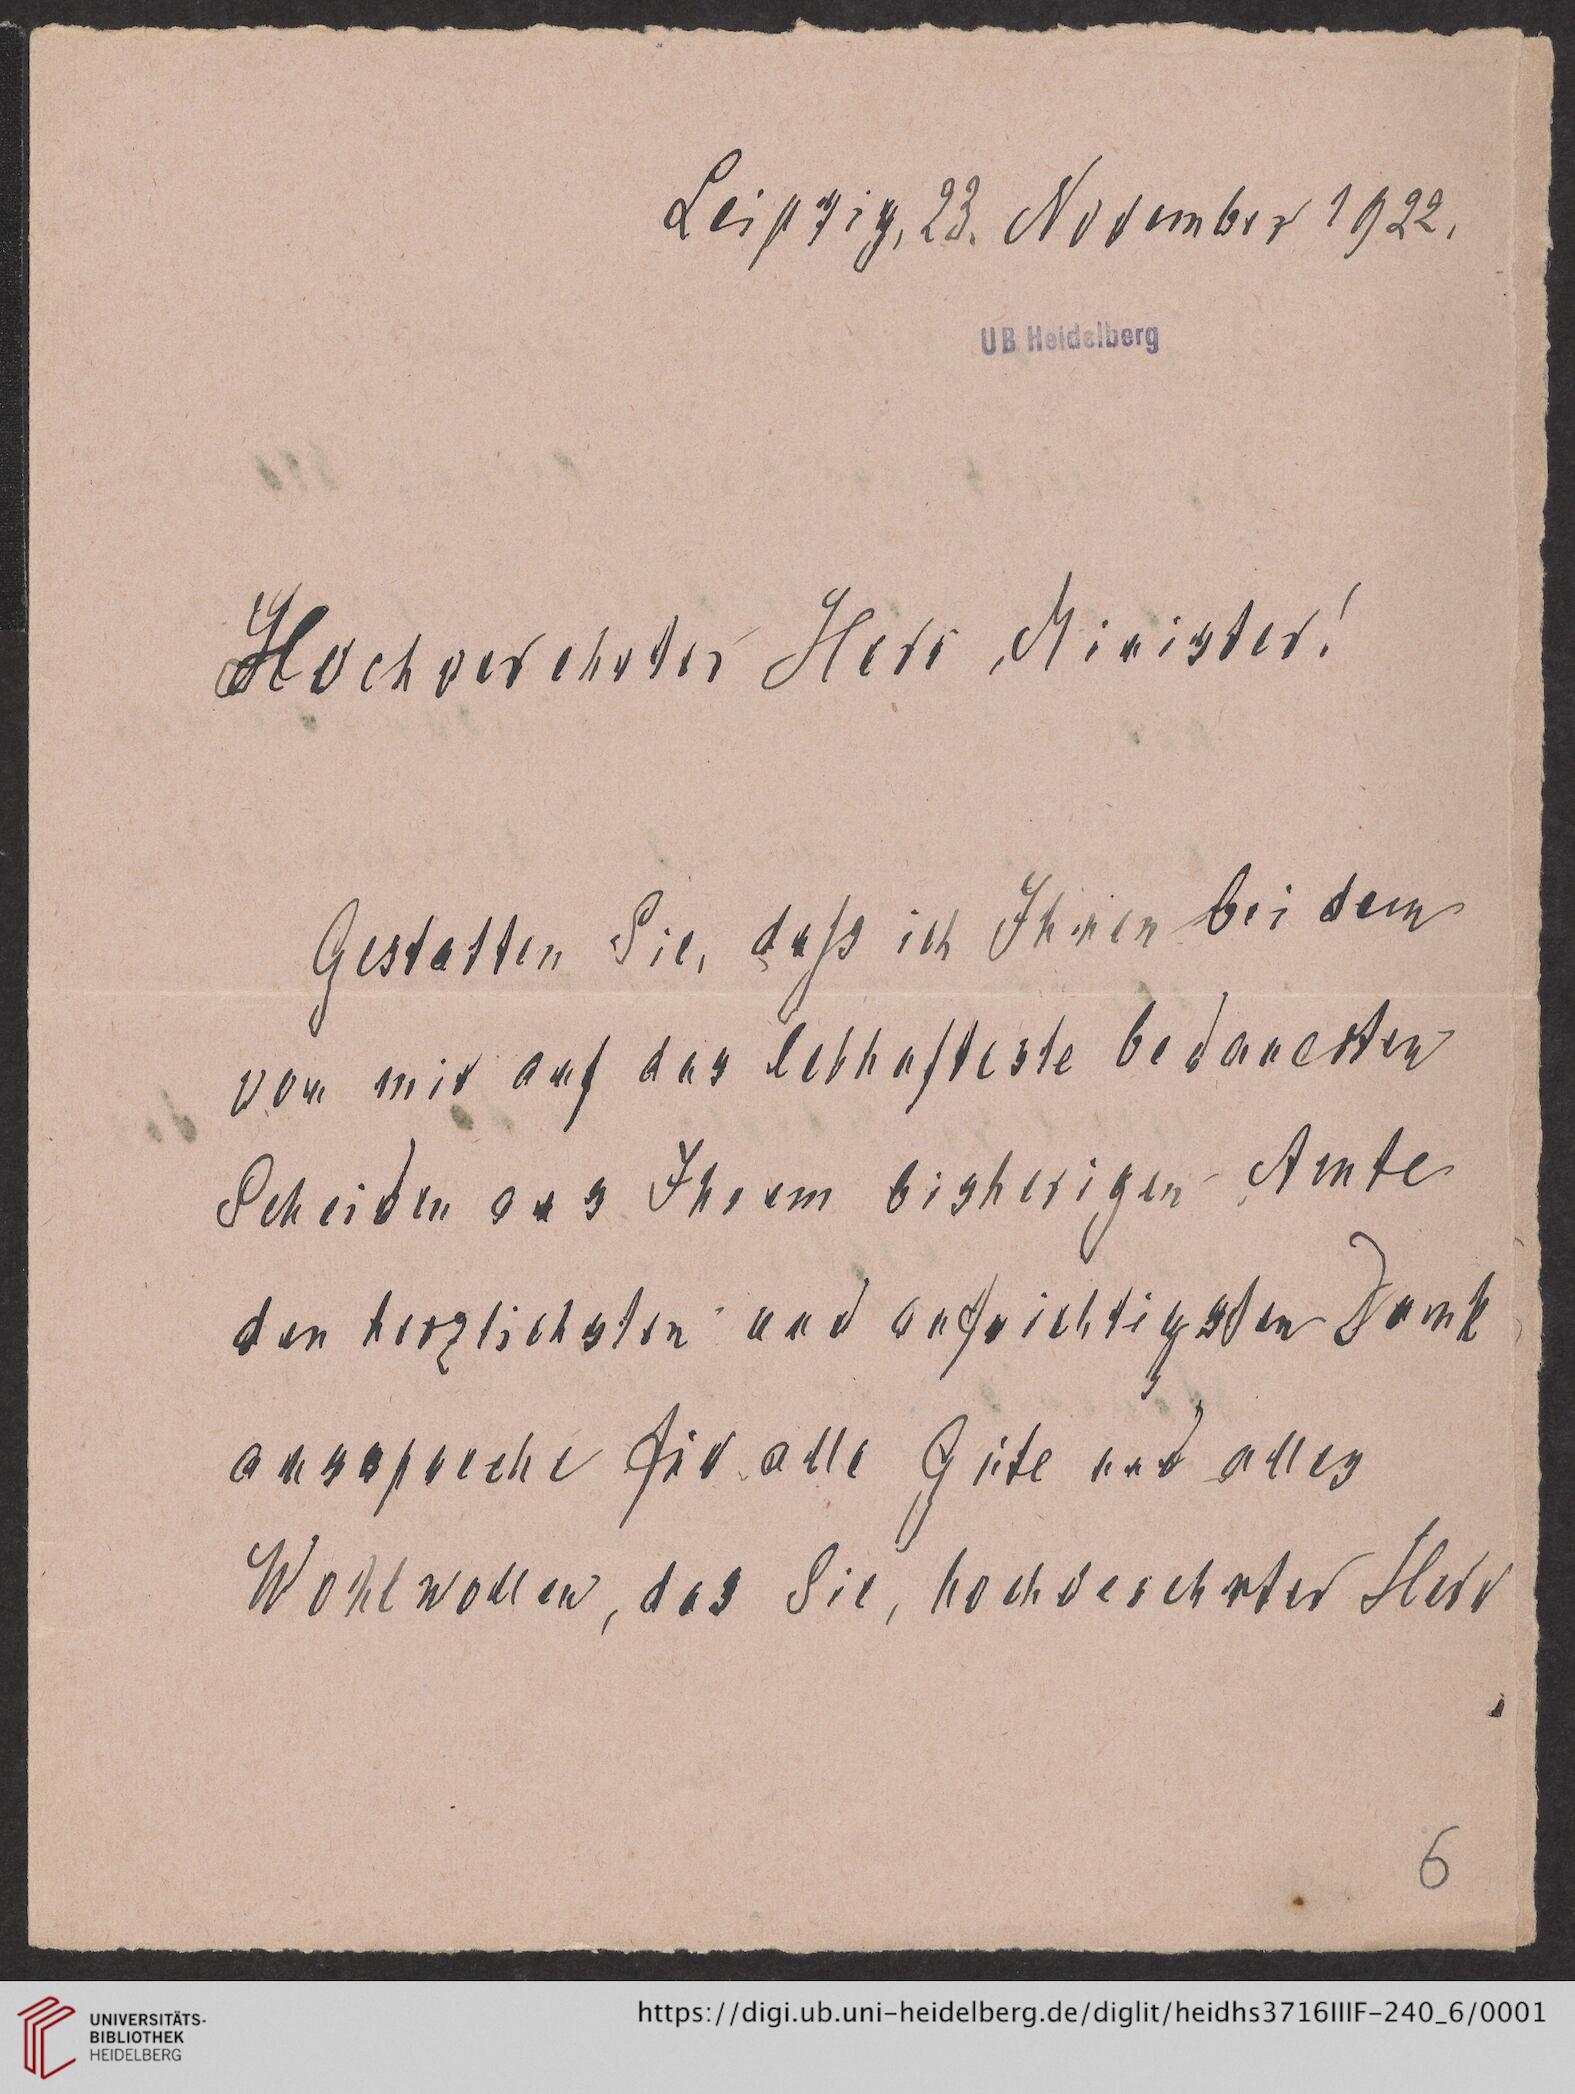 Leipzig, 23. November 1922.
UB Heidelberg
Hochverehrter Herr Minister!
Gestatten Sie, dass ich Ihnen bei dem
von mir auf das lebhafteste bedauerten
Scheiden aus Ihrem bisherigen Amte
den herzlichsten und aufrichtigsten Dank
ausspreche für alle Güte und alles
Wohlwollen, das Sie, hochverehrter Herr
6
UNIVERSITÄTS-
BIBLIOTHEK
HEIDELBERG
https://digi.ub.uni-heidelberg.de/diglit/heidhs3716IIIF-240_6/0001